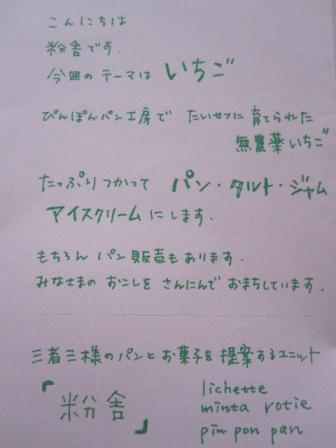 こんにちは
粉舎です.
今回のテーマは いちご
ぴんぽんパン工房で たいせつに 育てられた
無農薬いちご
たっぷりつかって パン・タルト・ジャム
アイスクリームにします.
もちろん パン販売もあります.
みなさまの おこしを さんにんで おまちしています.
三者三様のパンとお菓子を提案するユニット
「粉舎」
lichette
minta rotie
pin pon pan